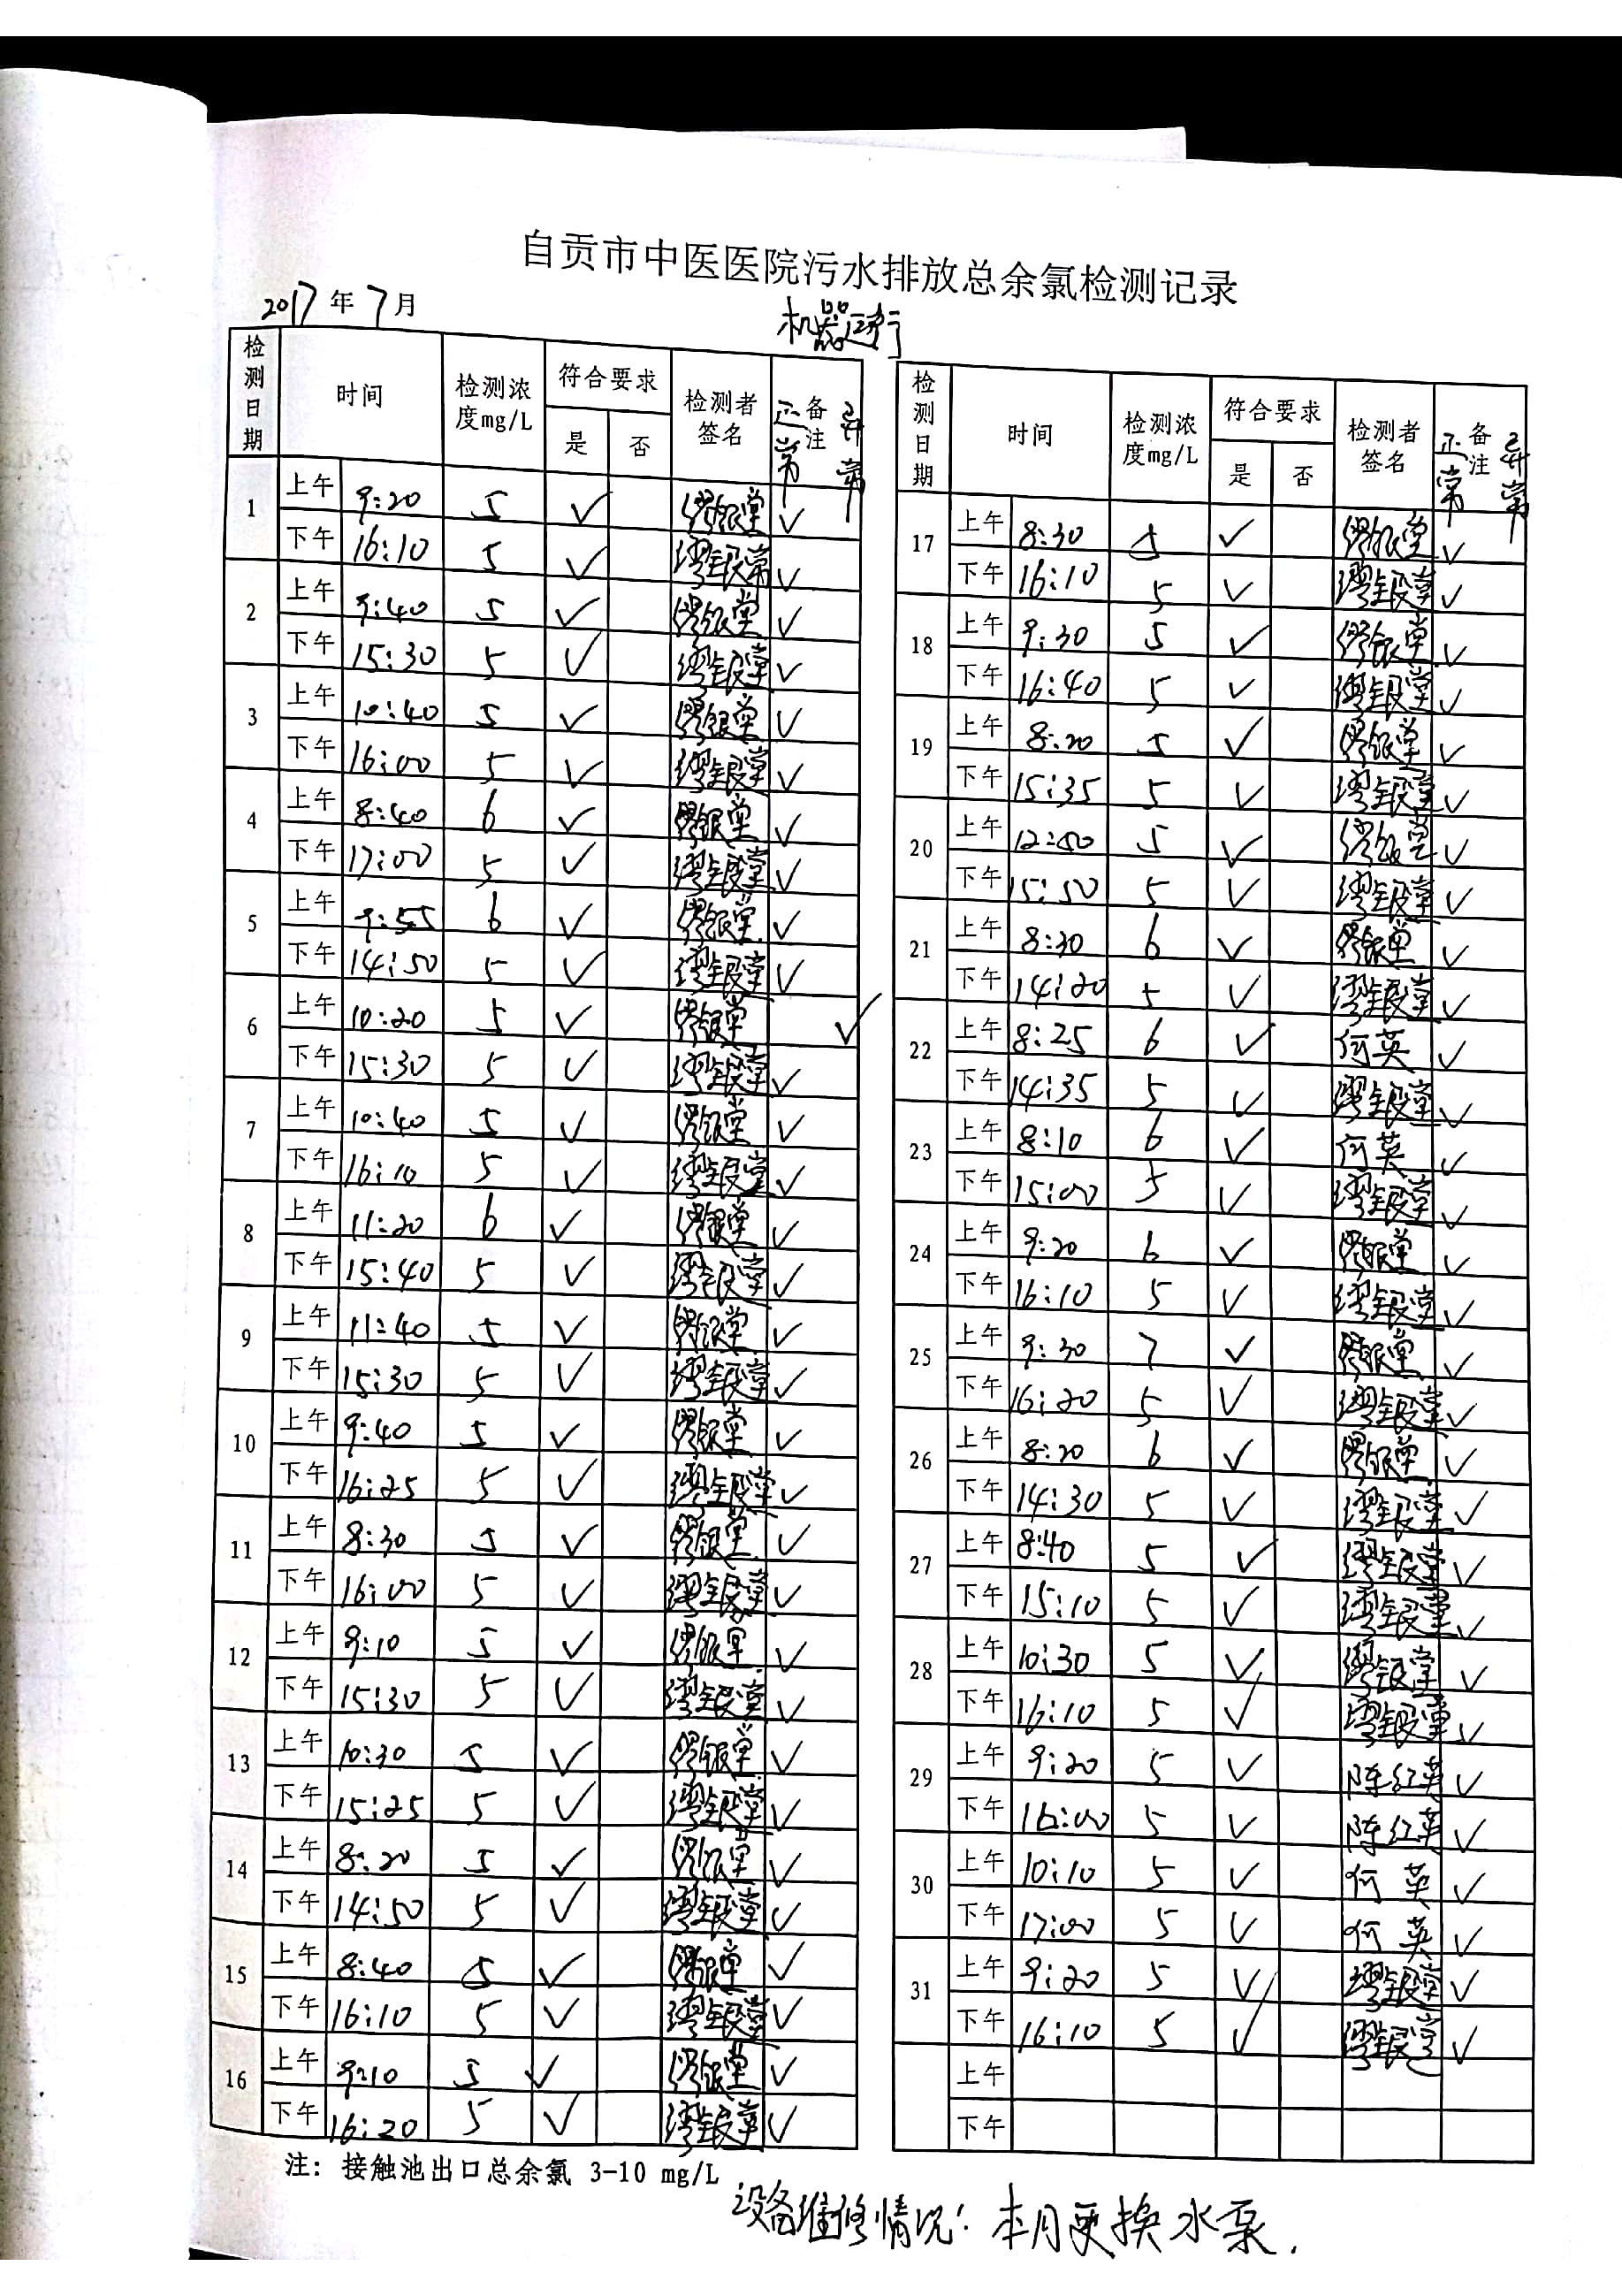 自贡市中医医院污水排放总余氯检测记录
2017年7月
机器运行
检测日期 时间 检测浓度mg/L 符合要求 是 否 检测者签名 备注 正常 异常
1 上午 9:20 5 ✓ 缪银堂 ✓
下午 16:10 5 ✓ 缪银棠 ✓
2 上午 9:40 5 ✓ 缪银堂 ✓
下午 15:30 5 ✓ 缪银堂 ✓
3 上午 10:40 5 ✓ 缪银堂 ✓
下午 16:00 5 ✓ 缪银堂 ✓
4 上午 8:40 6 ✓ 缪银堂 ✓
下午 17:00 5 ✓ 缪银堂 ✓
5 上午 9:55 6 ✓ 缪银堂 ✓
下午 14:50 5 ✓ 缪银堂 ✓
6 上午 10:20 5 ✓ 缪银堂 ✓
下午 15:30 5 ✓ 缪银堂 ✓
7 上午 10:40 5 ✓ 缪银堂 ✓
下午 16:10 5 ✓ 缪银堂 ✓
8 上午 11:20 6 ✓ 缪银堂 ✓
下午 15:40 5 ✓ 缪银堂 ✓
9 上午 11:40 5 ✓ 缪银堂 ✓
下午 15:30 5 ✓ 缪银堂 ✓
10 上午 9:40 5 ✓ 缪银堂 ✓
下午 16:25 5 ✓ 缪银堂 ✓
11 上午 8:30 5 ✓ 缪银堂 ✓
下午 16:00 5 ✓ 缪银堂 ✓
12 上午 9:10 5 ✓ 缪银堂 ✓
下午 15:30 5 ✓ 缪银堂 ✓
13 上午 10:30 5 ✓ 缪银堂 ✓
下午 15:25 5 ✓ 缪银堂 ✓
14 上午 8:20 5 ✓ 缪银堂 ✓
下午 14:50 5 ✓ 缪银堂 ✓
15 上午 8:40 5 ✓ 缪银堂 ✓
下午 16:10 5 ✓ 缪银堂 ✓
16 上午 9:10 5 ✓ 缪银堂 ✓
下午 16:20 5 ✓ 缪银堂 ✓
检测日期 时间 检测浓度mg/L 符合要求 是 否 检测者签名 备注 正常 异常
17 上午 8:30 5 ✓ 缪银堂 ✓
下午 16:10 5 ✓ 缪银堂 ✓
18 上午 9:30 5 ✓ 缪银堂 ✓
下午 16:40 5 ✓ 缪银堂 ✓
19 上午 8:20 5 ✓ 缪银堂 ✓
下午 15:35 5 ✓ 缪银堂 ✓
20 上午 5 ✓ 缪银堂 ✓
下午 15:50 5 ✓ 缪银堂 ✓
21 上午 8:30 6 ✓ 缪银堂 ✓
下午 14:20 5 ✓ 缪银堂 ✓
22 上午 8:25 6 ✓ 何英 ✓
下午 14:35 5 ✓ 缪银堂 ✓
23 上午 8:10 6 ✓ 何英 ✓
下午 15:00 5 ✓ 缪银堂 ✓
24 上午 9:20 6 ✓ 缪银堂 ✓
下午 16:10 5 ✓ 缪银堂 ✓
25 上午 9:30 7 ✓ 缪银堂 ✓
下午 16:20 5 ✓ 缪银堂 ✓
26 上午 8:20 6 ✓ 缪银堂 ✓
下午 14:30 5 ✓ 缪银堂 ✓
27 上午 8:40 5 ✓ 缪银堂 ✓
下午 15:10 5 ✓ 缪银堂 ✓
28 上午 10:30 5 ✓ 缪银堂 ✓
下午 16:10 5 ✓ 缪银堂 ✓
29 上午 9:20 5 ✓ 陈红英 ✓
下午 16:00 5 ✓ 陈红英 ✓
30 上午 10:10 5 ✓ 何英 ✓
下午 17:00 5 ✓ 何英 ✓
31 上午 9:20 5 ✓ 缪银堂 ✓
下午 16:10 5 ✓ 缪银堂 ✓
上午
下午
注：接触池出口总余氯 3-10 mg/L
设备维修情况：本月更换水泵.